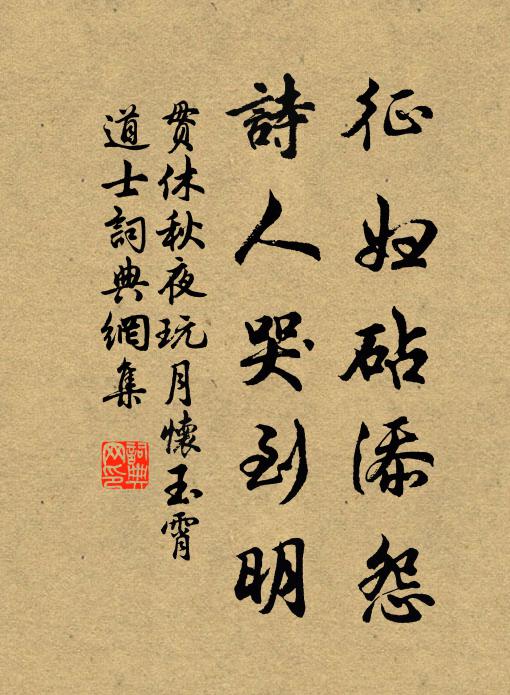 征妇砧添怨
詩人哭到明
貫休秋夜玩月懷玉霄
道士詞典網集
詞典网印